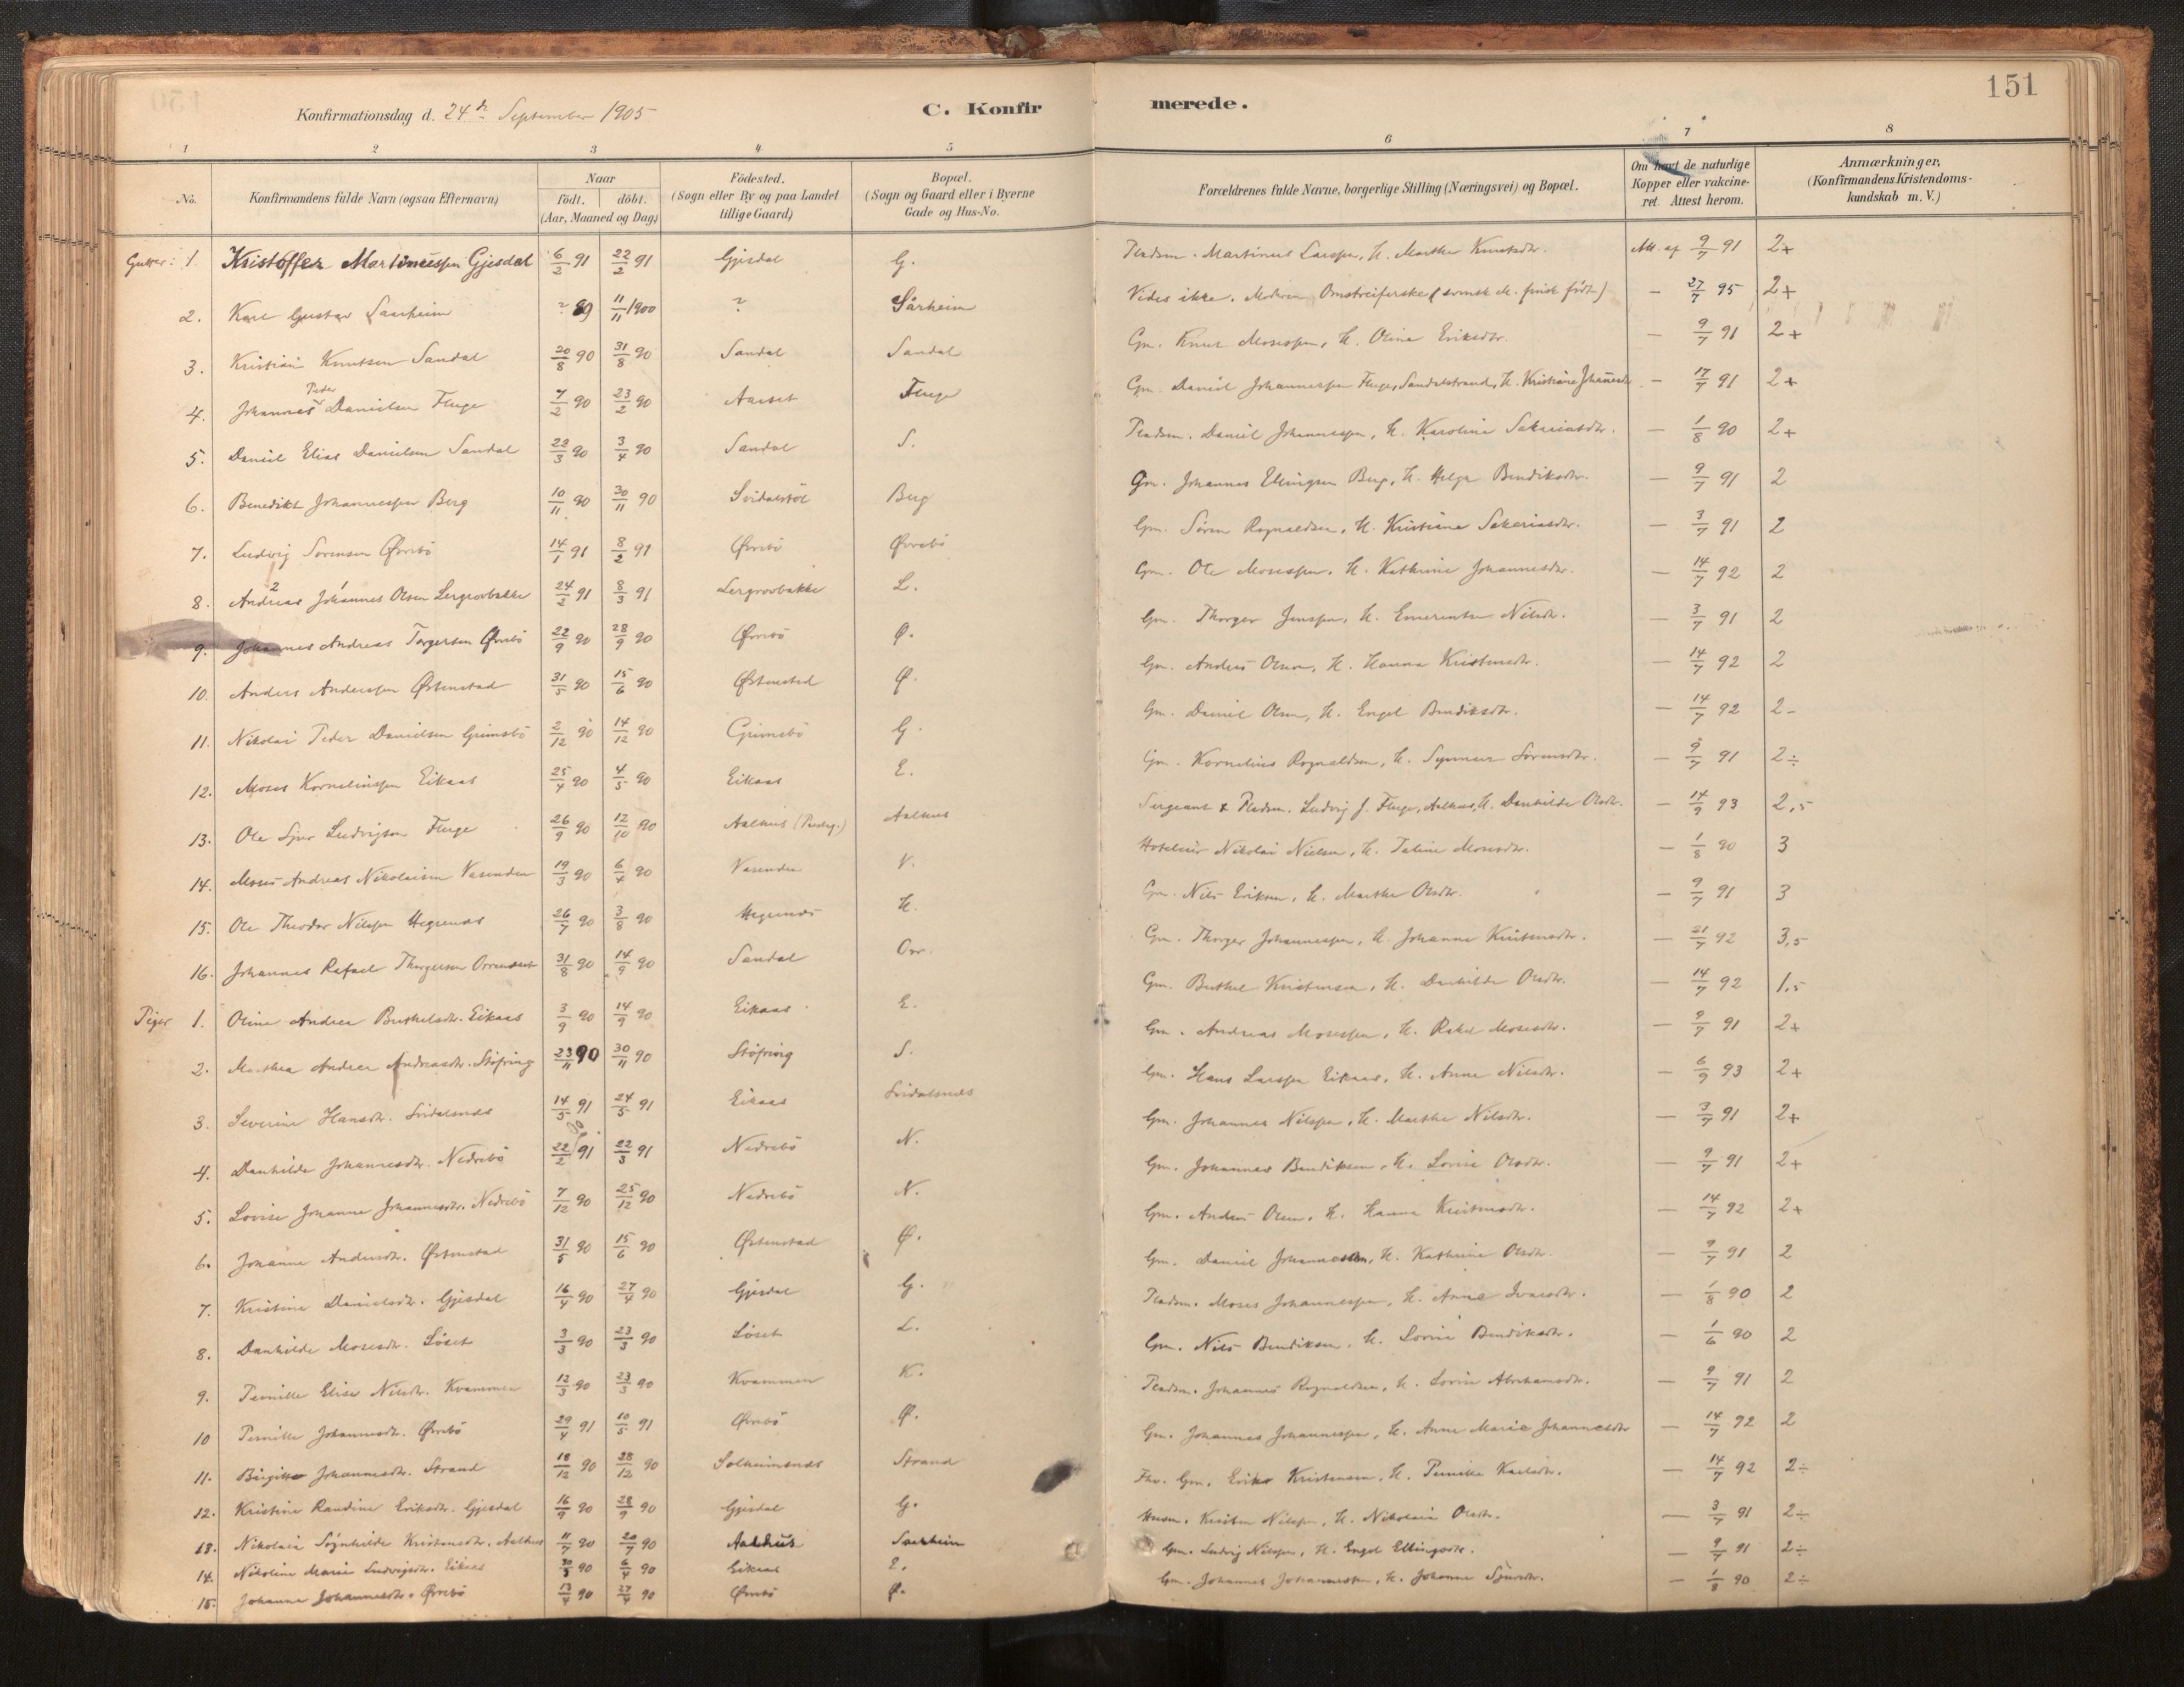 151
Konfirmationsdag d. 24de September 1905
C. Konfirmerede.
1 2 3 4 5 6 7 8
No. Konfirmandens fulde Navn (ogsaa Efternavn) Naar födt. döbt. (Aar, Maaned og Dag) Födested. (Sogn eller By og paa Landet tillige Gaard) Bopæl. (Sogn og Gaard eller i Byerne Gade og Hus-No. Forældrenes fulde Navne, borgerlige Stilling (Næringsvei) og Bopæl. Om havt de naturlige Kopper eller vakcineret. Attest herom. Anmærkninger, (Konfirmandens Kristendomskundskab m. V.)
Gutter: 1. Kristoffer Martinussen Gjesdal 6/2 91 22/2 91 Gjesdal G. Pladsm. Martinus Larssen, H. Marthe Knutsdtr. Att. af 9/7 91 2+
2. Karl Gustav Saarheim ? 89 11/11 1900 ? Sårheim Vides ikke. Moderen Omstreiferske (svensk el. finsk født) — 27/7 95 2+
3. Kristian Knutsen Sandal 20/8 90 31/8 90 Sandal Sandal Gm. Knut Mosessen, H. Oline Eriksdtr. — 9/7 91 2+
4. Johannes Peder Danielsen Fluge 7/2 90 23/2 90 Aarset Fluge Gm. Daniel Johannessen Fluge, Sandalstrand, H. Kristiane Johannesdtr. — 17/7 91 2+
5. Daniel Elias Danielsen Sandal 22/3 90 3/4 90 Sandal S. Pladsm. Daniel Johannessen, H. Karoline Sakariasdtr. — 1/8 90 2+
6. Benedikt Johannessen Berg 10/11 90 30/11 90 Svidalstøl Berg Gm. Johannes Ellingsen Berg, H. Helga Bendiksdtr. — 9/7 91 2
7. Ludvig Sørensen Øvrebö 14/1 91 8/2 91 Øvrebö Øvrebö Gm. Sören Rognaldsen, H. Kristiane Sakariasdtr. — 3/7 91 2
8. Andreas Johannes Olsen Lergrovbakke 24/2 91 8/3 91 Lergrovbakke L. Gm. Ole Mosessen, H. Kathrine Johannesdtr. — 14/7 92 2
9. Johannes Andreas Torgersen Øvrebö 22/9 90 28/9 90 Øvrebö Ø. Gm. Thorger Jenssen, H. Emerentse Nilsdtr. — 3/7 91 2
10. Anders Anderssen Østenstad 31/5 90 15/6 90 Østenstad Ø. Gm. Anders Olsen, H. Hanna Kristensdtr. — 14/7 92 2
11. Nikolai Peder Danielsen Grimsbö 2/12 90 14/12 90 Grimsbö G. Gm. Daniel Olsen, H. Engel Bendiksdtr. — 14/7 92 2-
12. Moses Korneliussen Eikaas 25/4 90 4/5 90 Eikaas E. Gm. Kornelius Rognaldsen, H. Synneve Sörensdtr. — 9/7 91 2÷
13. Ole Sjur Ludvigsen Fluge 26/9 90 12/10 90 Aalhus (Prestg.) Aalhus Sergeant & Pladsm. Ludvig J. Fluge, Aalhus, H. Danhilde Olsdtr. — 14/9 93 2,5
14. Moses Andreas Nikolaisen Vasenden 19/3 90 6/4 90 Vasenden V. Hoteleier Nikolai Nielsen, H. Taline Mosesdtr. — 1/8 90 3
15. Ole Theodor Nilssen Hegrenæs 26/7 90 3/8 90 Hegrenæs H. Gm. Nils Eriksen, H. Marthe Olsdtr. — 9/7 91 3
16. Johannes Rafael Thorgersen 31/8 90 14/9 90 Sandal Orr. Gm. Thorger Johannessen, H. Johanne Kristensdtr. — 21/7 92 3,5
Piger 1. Oline Andrea Berthelsdtr. Eikaas 3/9 90 14/9 90 Eikaas E. Gm. Berthel Kristensen, H. Danhilde Olsdtr. — 14/7 92 1,5
2. Marthea Andrea Andreasdtr. Støfring 23/11 90 30/11 90 Støfring S. Gm. Andreas Mosessen, H. Rakel Mosesdtr. — 9/7 91 2+
3. Severine Hansdtr. Svidalsnæs 14/5 91 24/5 91 Eikaas Svidalsnæs Gm. Hans Larssen Eikaas, H. Anne Nilsdtr. — 6/9 93 2+
4. Danhilde Johannesdtr. Nedrebö 22/2 91 22/3 91 Nedrebö N. Gm. Johannes Nilssen, H. Marthe Nilsdtr. — 3/7 91 2+
5. Lovise Johanne Johannesdtr. Nedrebö 7/12 90 25/12 90 Nedrebö N. Gm. Johannes Bendiksen, H. Lovise Olsdtr. — 9/7 91 2+
6. Johanne Andersdtr. Østenstad 31/5 90 15/6 90 Østenstad Ø. Gm. Anders Olsen, H. Hanna Kristensdtr. — 14/7 92 2+
7. Kristine Danielsdtr. Gjesdal 16/4 90 27/4 90 Gjesdal G. Gm. Daniel Johannessen, H. Kathrine Olsdtr. — 9/7 91 2
8. Danhilde Mosesdtr. Löset 3/3 90 23/3 90 Löset L. Pladsm. Moses Johannessen, H. Anne Ivarsdtr. — 1/8 90 2
9. Pernille Elise Nilsdtr. Kvammen 12/3 90 23/3 90 Kvammen K. Gm. Nils Bendiksen, H. Lovise Bendiksdtr. — 1/6 90 2
10 Pernille Johannesdtr. Øvrebö 29/4 91 10/5 91 Øvrebö Ø. Pladsm. Johannes Rognaldsen, H. Lovise Abrahamsdtr. — 9/7 91 2
11. Birgitte Johannesdtr. Strand 18/12 90 28/12 90 Solheimsnæs Strand Gm. Johannes Johannessen, H. Anne Marie Johannesdtr — 14/7 92 2
12. Kristine Randine Eriksdtr. Gjesdal 16/9 90 28/9 90 Gjesdal G. Fhv. Gm. Erik Kristensen, H. Pernille Karlsdtr. — 14/7 92 2÷
13. Nikolaia Sögnhilde Kristensdtr. Aalhus 11/7 90 20/7 90 Aalhus Saarheim Husm. Kristen Nilssen, H. Nikolaia Olsdtr. — 3/7 91 2÷
14. Nikoline Marie Ludvigsdtr. Eikaas 30/3 90 6/4 90 Eikaas E. Gm. Ludvig Nilssen, H. Engel Ellingsdtr. — 9/7 91 2÷
15. Johanne Johannesdtr. Øvrebö 13/4 90 27/4 90 Øvrebö Ø. Gm. Johannes Johannessen, H. Johanne Sjursdtr. — 1/8 90 2÷